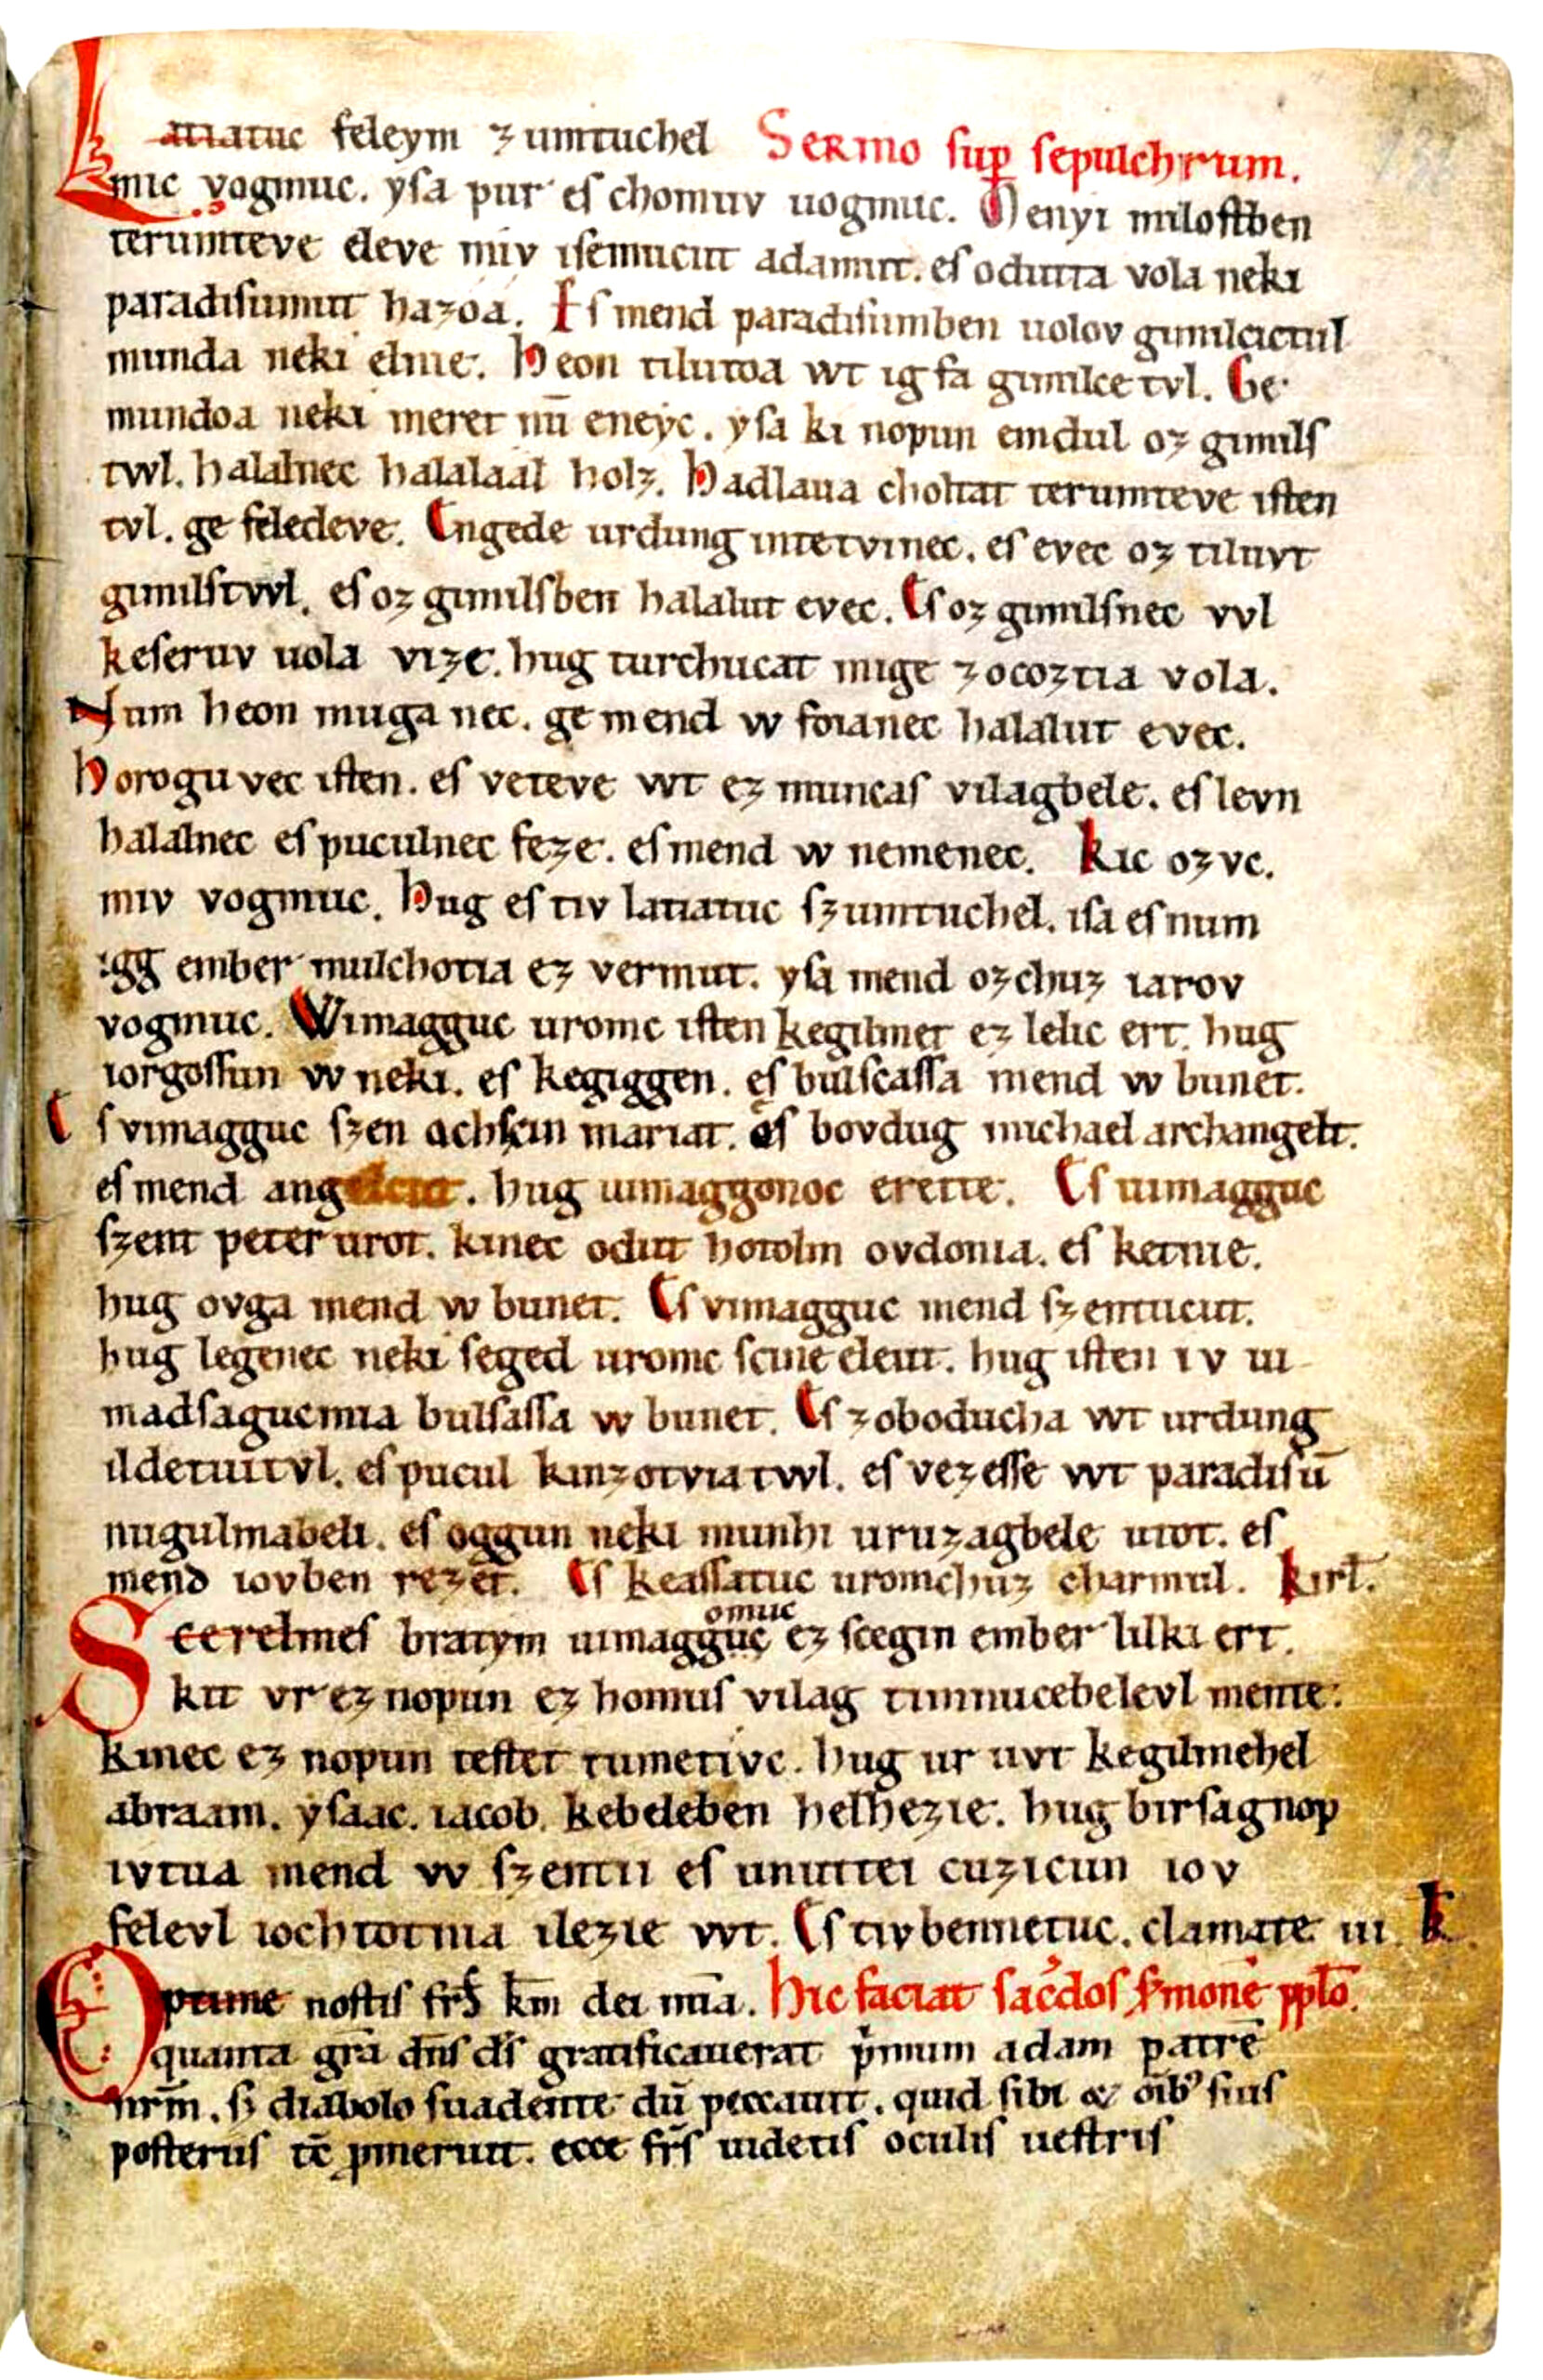 Latiatuc feleym zumtuchel Sermo sup sepulchrum.
mic vogmuc. ysa pur es chomuv uogmuc. Menyi miloſtben
terumteve eleve miv isemucut adamut. es odutta vola neki
paradisumut hazóá. Es mend paradisumben uolov gimilcictul
munda neki elnie. Heon tilutoa wt ig fa gimilce tvl. Ge
mundoa neki meret nū eneyc. ysa ki nopun emdul oz gimils
twl. halalnec halalaal holz. Hadlaua choltat terumteve isten
tvl. ge feledeve. Engede urdung intetvinec. es evec oz tiluvt
gimilstwl. es oz gimilsben halalut evec. Es oz gimilsnec vvl
keseruv uola vize. hug turchucat mige zocoztia vola.
Num heon muga nec. ge mend w foianec halalut evec.
Horogu vec isten. es veteve wt ez muncas vilagbele. es levn
halalnec es puculnec feze. es mend w nemenec. Kic ozvc.
miv vogmuc. Hug es tiv latiatuc szumtuchel. isa es num
igg ember mulchotia ez vermut. ysa mend ozchuz iarov
vogmuc. Wimagguc uromc isten kegilmet ez lelic ert. hug
iorgossun w neki. es kegiggen. es bulscassa mend w bunet.
Es vimagguc szen achscin mariat. es bovdug michael archangelt.
es mend angelcut. hug uimaggonoc erette. Es uimagguc
szent peter urot. kinec odut hotolm ovdonia. es ketnie.
hug ovga mend w bunet. Es vimagguc mend szentucut.
hug legenec neki seged uromc scine eleut. hug isten iv ui
madsaguc mia bulsassa w bunet. Es zoboducha wt urdung
ildetuitvl. es pucul kinzotviatwl. es vezesse wt paradisū
nugulmabeli. es oggun neki munhi uruzagbele utot. es
mend iovben rezet. Es keassatuc uromchuz charmul. Kirl.
Scerelmes bratym uimagguc omuc ez scegin ember lilki ert.
kit vr ez nopun ez homus vilag timnucebelevl mente.
kinec ez nopun testet tumetivc. hug ur uvt kegilmehel
abraam. ysaac. iacob. kebeleben helhezie. hug birsagnop
ivtua mend w szentii es unuttei cuzicun iov
felevl iochtotnia ilezie wt. Es tiv bennetuc. clamate iii. K.
Optime nostis frs km dei mia. Hic faciat sacdos smonē pplo.
quanta gra dns ds gratificauerat pmum adam patrē
nrm. s; diabolo suadente dū peccauit. quid sibi & oib; suis
posteris tc pmeruit. ecce frs uidetis oculis uestris